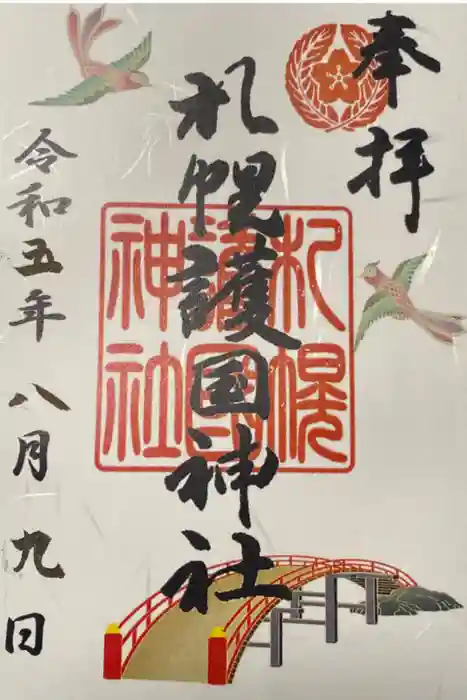 奉拝
札幌護国神社
札幌護國神社
令和五年八月九日